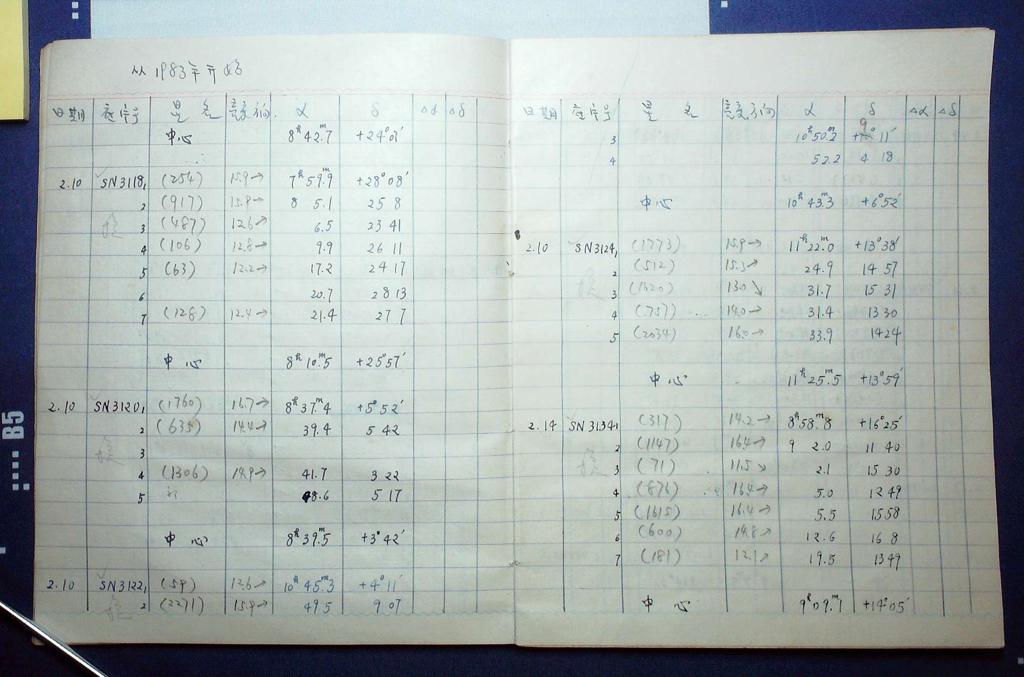 从1983年开始
日期 底片号 星名 亮度方向 α δ Δα Δδ
中心 8ʰ42.ᵐ7 +24°01′
2.10 SN3118,1 (254) 15.9→ 7ʰ59.ᵐ9 +28°08′
2 (917) 15.9→ 8 5.1 25 8
3 (487) 12.6→ 6.5 23 41
4 (106) 12.8→ 9.9 26 11
5 (63) 12.2→ 17.2 24 17
6 20.7 28 13
7 (128) 12.4→ 21.4 27 7
中心 8ʰ10.ᵐ5 +25°57′
2.10 SN3120,1 (1760) 16.7→ 8ʰ37.ᵐ4 +5°52′
2 (635) 14.4→ 39.4 5 42
3
4 (1306) 14.9→ 41.7 3 22
5 48.6 5 17
中心 8ʰ39.ᵐ5 +3°42′
2.10 SN3122,1 (59) 12.6→ 10ʰ45.ᵐ3 +4°11′
2 (2271) 15.9→ 49.5 9 07
日期 底片号 星名 亮度方向 α δ Δα Δδ
3 10ʰ50.ᵐ2 9°11′
4 52.2 4 18
中心 10ʰ43.ᵐ3 +6°52′
2.10 SN3124,1 (1773) 15.9→ 11ʰ22.ᵐ0 +13°38′
2 (512) 15.3→ 24.9 14 57
3 (1520) 13.0↘ 31.7 15 31
4 (757) 14.0→ 31.4 13 30
5 (2034) 16.0→ 33.9 14 24
中心 11ʰ25.ᵐ5 +13°59′
2.14 SN3134,1 (317) 14.2→ 8ʰ58.ᵐ8 +16°25′
2 (1147) 16.4→ 9 2.0 11 40
3 (71) 11.5↘ 2.1 15 30
4 (876) 16.4→ 5.0 12 49
5 (1615) 16.4→ 5.5 15 58
6 (600) 14.8↗ 12.6 16 8
7 (181) 12.1↗ 19.5 13 49
中心 9ʰ09.ᵐ1 +14°05′
B5